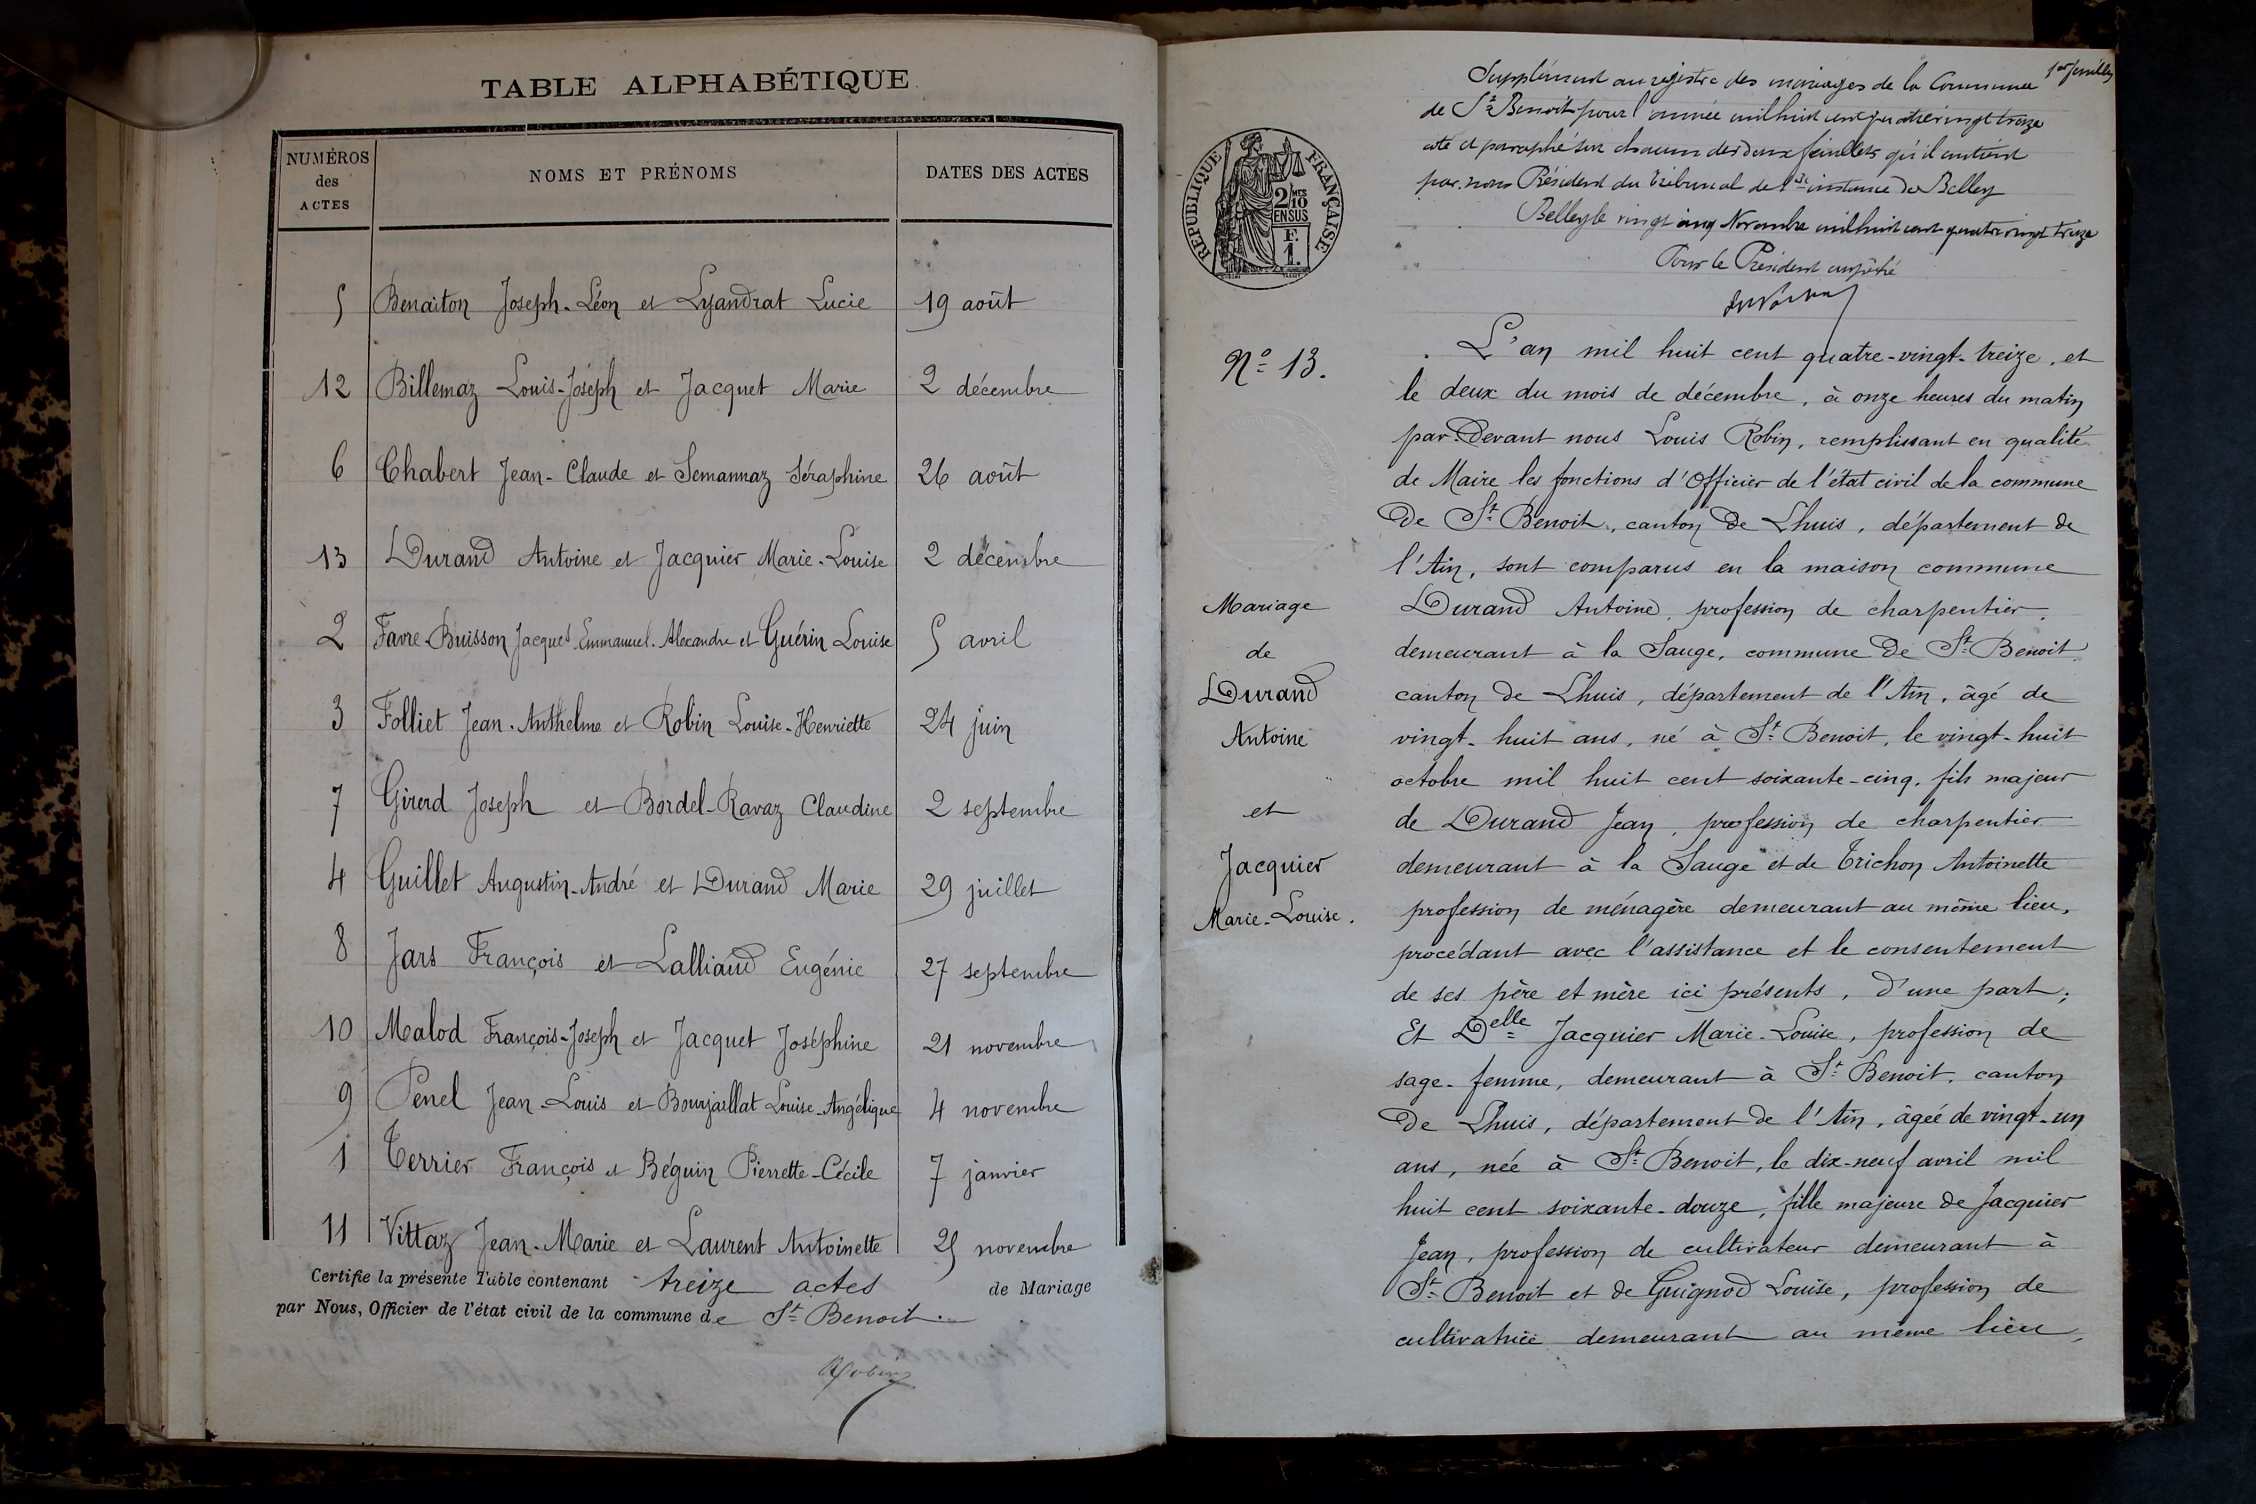 TABLE ALPHABÉTIQUE
NUMÉROS des ACTES NOMS ET PRÉNOMS DATES DES ACTES
5 Benaiton Joseph-Léon et Lyandrat Lucie 19 août
12 Billemaz Louis-Joseph et Jacquet Marie 2 décembre
6 Chabert Jean-Claude et Semannaz Séraphine 26 août
13 Durand Antoine et Jacquier Marie-Louise 2 décembre
2 Favre-Buisson Jacques Emmanuel-Alexandre et Guérin Louise 5 avril
3 Folliet Jean-Anthelme et Robin Louise-Henriette 24 juin
7 Girerd Joseph et Bordel-Ravaz Claudine 2 septembre
4 Guillet Augustin-André et Durand Marie 29 juillet
8 Jars François et Lalliand Eugénie 27 septembre
10 Malod François-Joseph et Jacquet Joséphine 21 novembre
9 Penel Jean-Louis et Bourjaillat Louise-Angélique 4 novembre
1 Terrier François et Béguin Pierrette-Cécile 7 janvier
11 Vittaz Jean-Marie et Laurent Antoinette 25 novembre
Certifie la présente Table contenant treize actes de Mariage
par Nous, Officier de l'état civil de la commune de St Benoit.
Robin
1er feuillet
Supplément au registre des mariages de la Commune
de St Benoit pour l'année mil huit cent quatre vingt treize
coté et paraphé sur chacun des deux feuillets qu'il contient
par nous Président du tribunal de 1re instance de Belley
Belley le vingt cinq Novembre mil huit cent quatre vingt treize
Pour le Président empêché
RÉPUBLIQUE FRANÇAISE
2/10MES
EN SUS
F.
1.
No 13.
L'an mil huit cent quatre-vingt-treize, et
le deux du mois de décembre, à onze heures du matin
par-devant nous Louis Robin, remplissant en qualité
de Maire les fonctions d'Officier de l'état civil de la commune
de St Benoit, canton de Lhuis, département de
l'Ain, sont comparus en la maison commune
Mariage
de
Durand
Antoine
et
Jacquier
Marie-Louise.
Durand Antoine, profession de charpentier,
demeurant à la Sauge, commune de St Benoit
canton de Lhuis, département de l'Ain, âgé de
vingt-huit ans, né à St Benoit, le vingt-huit
octobre mil huit cent soixante-cinq, fils majeur
de Durand Jean, profession de charpentier
demeurant à la Sauge et de Trichon Antoinette
profession de ménagère demeurant au même lieu,
procédant avec l'assistance et le consentement
de ses père et mère ici présents, d'une part;
Et Delle Jacquier Marie-Louise, profession de
sage-femme, demeurant à St Benoit, canton
de Lhuis, département de l'Ain, âgée de vingt-un
ans, née à St Benoit, le dix-neuf avril mil
huit cent soixante-douze, fille majeure de Jacquier
Jean, profession de cultivateur demeurant à
St Benoit et de Guignod Louise, profession de
cultivatrice demeurant au même lieu,